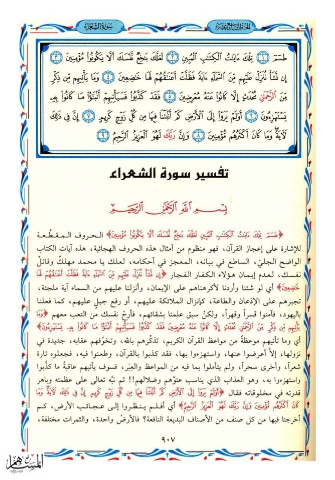 سورة الشعراء
طسٓمٓ ۝ تِلْكَ ءَايَٰتُ ٱلْكِتَٰبِ ٱلْمُبِينِ ۝ لَعَلَّكَ بَٰخِعٌ نَّفْسَكَ أَلَّا يَكُونُوا۟ مُؤْمِنِينَ ۝
إِن نَّشَأْ نُنَزِّلْ عَلَيْهِم مِّنَ ٱلسَّمَآءِ ءَايَةً فَظَلَّتْ أَعْنَٰقُهُمْ لَهَا خَٰضِعِينَ ۝ وَمَا يَأْتِيهِم مِّن ذِكْرٍ
مِّنَ ٱلرَّحْمَٰنِ مُحْدَثٍ إِلَّا كَانُوا۟ عَنْهُ مُعْرِضِينَ ۝ فَقَدْ كَذَّبُوا۟ فَسَيَأْتِيهِمْ أَنۢبَٰٓؤُا۟ مَا كَانُوا۟ بِهِۦ
يَسْتَهْزِءُونَ ۝ أَوَلَمْ يَرَوْا۟ إِلَى ٱلْأَرْضِ كَمْ أَنۢبَتْنَا فِيهَا مِن كُلِّ زَوْجٍ كَرِيمٍ ۝ إِنَّ فِى ذَٰلِكَ
لَءَايَةً وَمَا كَانَ أَكْثَرُهُم مُّؤْمِنِينَ ۝ وَإِنَّ رَبَّكَ لَهُوَ ٱلْعَزِيزُ ٱلرَّحِيمُ ۝
تفسير سورة الشعراء
بِسْمِ ٱللَّهِ ٱلرَّحْمَٰنِ ٱلرَّحِيمِ
﴿طسٓمٓ تِلْكَ ءَايَٰتُ ٱلْكِتَٰبِ ٱلْمُبِينِ لَعَلَّكَ بَٰخِعٌ نَّفْسَكَ أَلَّا يَكُونُوا۟ مُؤْمِنِينَ﴾ الحروف المقطعة
للإشارة على إعجاز القرآن، فهو منظوم من أمثال هذه الحروف الهجائية، هذه آيات الكتاب
الواضح الجليّ، الساطع في بيانه، المعجز في أحكامه، لعلك يا محمد مهلكٌ وقاتلٌ
نفسك، لعدم إيمان هؤلاء الكفار الفجار ﴿إِن نَّشَأْ نُنَزِّلْ عَلَيْهِم مِّنَ ٱلسَّمَآءِ ءَايَةً فَظَلَّتْ أَعْنَٰقُهُمْ لَهَا
خَٰضِعِينَ﴾ أي لو شئنا وأردنا لأكرهناهم على الإيمان، وأنزلنا عليهم من السماء آية ملجئة،
تجبرهم على الإذعان والطاعة، كإنزال الملائكة عليهم، أو رفع جبلٍ عليهم، كما فعلنا
باليهود، فآمنوا قسراً وقهراً، ولكنْ سبق علمنا بشقائهم، فأرحْ نفسك من التعب معهم ﴿وَمَا
يَأْتِيهِم مِّن ذِكْرٍ مِّنَ ٱلرَّحْمَٰنِ مُحْدَثٍ إِلَّا كَانُوا۟ عَنْهُ مُعْرِضِينَ فَقَدْ كَذَّبُوا۟ فَسَيَأْتِيهِمْ أَنۢبَٰٓؤُا۟ مَا كَانُوا۟ بِهِۦ يَسْتَهْزِءُونَ﴾
أي وما تأتيهم موعظةٌ من مواعظ القرآن الكريم، تذكّرهم بالله، وتخوّفهم عقابه، جديدة في
نزولها، إلاّ أعرضوا عنها، واستهزءوا بها، فقد كذبوا بالقرآن، وطعنوا فيه، فجعلوه تارة
شعراً، وأخرى سحراً، ولم يتأملوا بما فيه من المواعظ والعبَر، فسوف يأتيهم عاقبة ما كذبوا
واستهزءوا به، وهو العذاب الذي يناسب عتوّهم وضلالهم!! ثم نبّه تعالى على عظمته وباهر
قدرته في مخلوقاته فقال ﴿أَوَلَمْ يَرَوْا۟ إِلَى ٱلْأَرْضِ كَمْ أَنۢبَتْنَا فِيهَا مِن كُلِّ زَوْجٍ كَرِيمٍ إِنَّ فِى ذَٰلِكَ لَءَايَةً وَمَا
كَانَ أَكْثَرُهُم مُّؤْمِنِينَ وَإِنَّ رَبَّكَ لَهُوَ ٱلْعَزِيزُ ٱلرَّحِيمُ﴾ أي أفلم ينظروا إلى عجائب الأرض، كم
أخرجنا فيها من كل صنف من الأصناف البديعة النافعة؟ فالأرضُ واحدة، والثمرات مختلفة،
٩٠٧